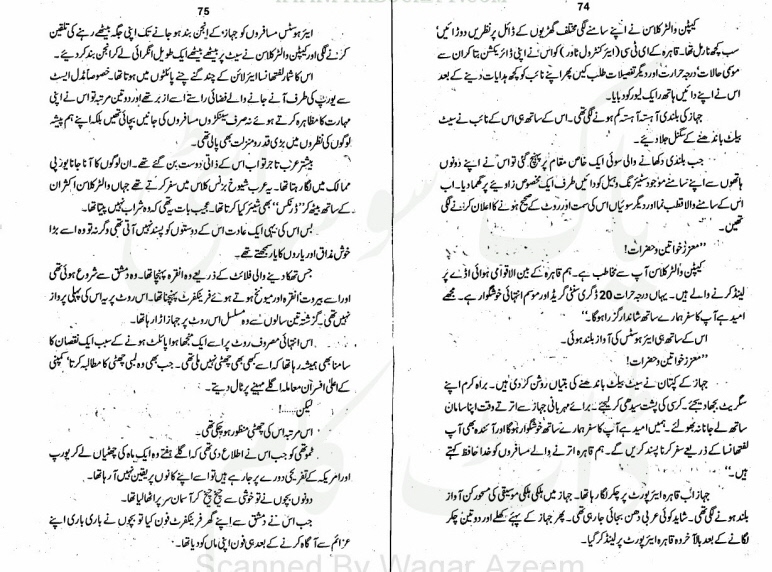 74
کیپٹن والٹر کلاسن نے اپنے سامنے لگی مختلف گھڑیوں کے ڈائل پر نظریں دوڑائیں'
سب کچھ نارمل تھا۔ قاہرہ کے ای ٹی سی (ایئر کنٹرول ٹاور) کو اس نے اپنی ڈائریکشن بتا کر ان سے
موسمی حالات' درجہ حرارت اور دیگر تفصیلات طلب کیں پھر اپنے نائب کو کچھ ہدایات دینے کے بعد
اس نے اپنے دائیں ہاتھ پر ایک لیور کو دبایا۔
جہاز کی بلندی آہستہ آہستہ کم ہونے لگی تھی۔ اس کے ساتھ ہی اس کے نائب نے سیٹ
بیلٹ باندھنے کے سگنل جلا دیئے۔
جب بلندی دکھانے والی سوئی ایک خاص مقام پر پہنچ گئی تو اس نے اپنے دونوں
ہاتھوں سے اپنے سامنے موجود سٹیئرنگ وہیل کو دائیں طرف ایک مخصوص زاویئے پر گھما دیا۔ اب
اس کے سامنے والا قطب نما اور دیگر سوئیاں اس کی سمت اور روٹ کے صحیح ہونے کا اعلان کرنے لگی
تھیں۔
''معزز خواتین و حضرات!
کیپٹن والٹر کلاسن آپ سے مخاطب ہے۔ ہم قاہرہ کے بین الاقوامی ہوائی اڈے پر
لینڈ کرنے والے ہیں۔ یہاں درجہ حرات 20 ڈگری سنٹی گریڈ اور موسم انتہائی خوشگوار ہے۔ مجھے
امید ہے آپ کا سفر ہمارے ساتھ شاندار گزرا ہوگا۔''
اس کے ساتھ ہی ایئر ہوسٹس کی آواز بلند ہوئی۔
''معزز خواتین و حضرات!
جہاز کے کپتان نے سیٹ بیلٹ باندھنے کی بتیاں روشن کر دی ہیں۔ براہ کرم اپنے
سگریٹ بجھا دیجئے۔ کرسی کی پشت سیدھی کر لیجئے۔ برائے مہربانی جہاز سے اترتے وقت اپنا سامان
ساتھ لے جانا نہ بھولئے۔ ہمیں امید ہے آپ کا سفر ہمارے ساتھ خوشگوار ہوگا اور آئندہ بھی آپ
لفتھانسا کے ذریعے سفر کرنا پسند کریں گے۔ ہم قاہرہ اترنے والے مسافروں کو خدا حافظ کہتے
ہیں۔''
جہاز اب قاہرہ ایئرپورٹ پر چکر لگا رہا تھا۔ جہاز میں ہلکی ہلکی موسیقی کی مسحور کن آواز
بلند ہونے لگی تھی۔ شاید کوئی عربی دھن بجائی جا رہی تھی۔ پھر جہاز کے پہیئے کھلے اور دو تین چکر
لگانے کے بعد بالآخر وہ قاہرہ ایئرپورٹ پر لینڈ کر گیا۔
75
ایئر ہوسٹس مسافروں کو جہاز کے انجن بند ہو جانے تک اپنی جگہ بیٹھے رہنے کی تلقین
کرنے لگی اور کیپٹن والٹر کلاسن نے سیٹ پر بیٹھے بیٹھے ایک طویل انگڑائی لے کر انجن بند کر دیئے۔
اس کا شمار لفتھانسا ایئر لائن کے چند گنے چنے پائلٹوں میں ہوتا تھا۔ خصوصاً مڈل ایسٹ
سے یورپ کی طرف آنے جانے والے فضائی راستے اسے ازبر تھے اور دو تین مرتبہ تو اس نے اپنی
مہارت کا مظاہرہ کرتے ہوئے نہ صرف سینکڑوں مسافروں کی جانیں بچائی تھیں بلکہ اپنے ہم پیشہ
لوگوں کی نظروں میں بڑی قدر و منزلت بھی پائی تھی۔
بیشتر عرب تاجر تو اب اس کے ذاتی دوست بن گئے تھے۔ ان لوگوں کا آنا جانا یورپی
ممالک میں لگا رہتا تھا۔ یہ عرب شیوخ بزنس کلاس میں سفر کرتے تھے جہاں والٹر کلاسن اکثر ان
کے ساتھ بیٹھ کر ''ڈرنکس'' بھی شیئر کیا کرتا تھا۔ عجیب بات یہ تھی کہ وہ شراب نہیں پیتا تھا۔
بس اس کی یہی ایک عادت اس کے دوستوں کو پسند نہیں آتی تھی وگرنہ تو وہ اسے بڑا
خوش مذاق اور یاروں کا یار سمجھتے تھے۔
جس تھکا دینے والی فلائٹ کے ذریعے وہ انقرہ پہنچا تھا۔ وہ دمشق سے شروع ہوئی تھی
اور اسے بیروت' انقرہ اور میونخ ہوتے ہوئے فرینکفرٹ پہنچنا تھا۔ اس روٹ پر یہ اس کی پہلی پرواز
نہیں تھی۔ گزشتہ تین سالوں سے وہ مسلسل اس روٹ پر جہاز اڑا رہا تھا۔
اس انتہائی مصروف روٹ پر اسے ایک منجھا ہوا پائلٹ ہونے کے سبب ایک نقصان کا
سامنا بھی ہمیشہ رہا تھا کہ اسے کبھی بھی چھٹی نہیں ملی تھی۔ جب بھی وہ لمبی چھٹی کا مطالبہ کرتا' کمپنی
کے اعلیٰ افسران معاملہ اگلے مہینے پر ٹال دیتے۔
لیکن......!
اس مرتبہ اس کی چھٹی منظور ہو چکی تھی۔
کو جب اس نے اطلاع دی تھی کہ اگلے ہفتے وہ ایک ماہ کی چھٹیاں لے کر یورپ
اور امریکہ کے تفریحی دورے پر جا رہے ہیں تو اسے اپنے کانوں پر یقین نہیں آ رہا تھا۔
دونوں بچوں نے تو خوشی سے چیخ چیخ کر آسمان سر پر اٹھا لیا تھا۔
جب اس نے دمشق سے اپنے گھر فرینکفرٹ فون کیا تو بچوں نے باری باری اپنے
عزائم سے آگاہ کرنے کے بعد ہی فون اپنی ماں کو دیا تھا۔
Scanned By Waqar Azeem